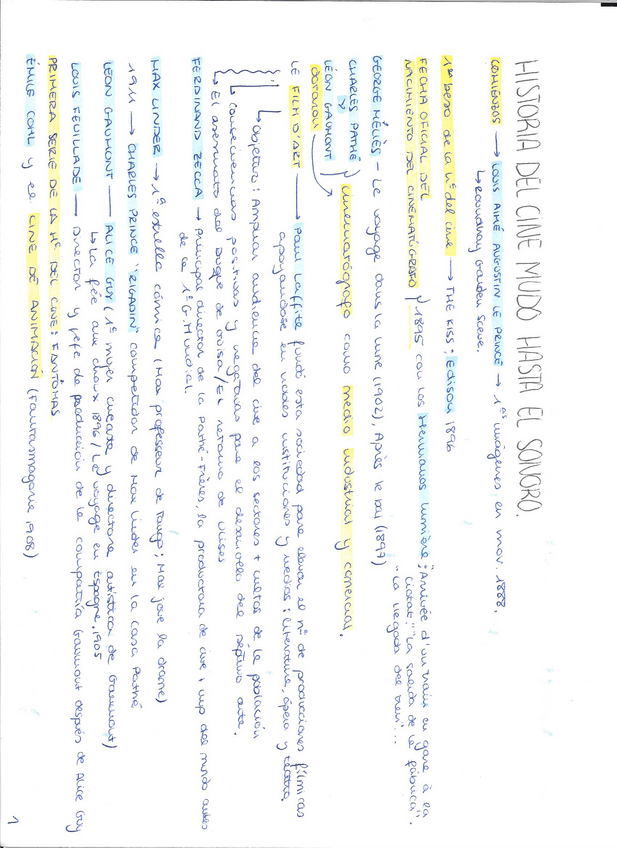 HISTORIA DEL CINE MUDO HASTA EL SONORO.
COMIENZOS → LOUIS AIMÉ AUGUSTIN LE PRINCE → 1ªˢ imágenes en mov. 1888.
↳ Roundhay Garden Scene.
1ᵉʳ beso de la hª del cine → THE KISS; Edison 1896
FECHA OFICIAL DEL
NACIMIENTO DEL CINEMATÓGRAFO } 1895 con los Hermanos Lumière: "Arrivée d'un train en gare à la
Ciotat" "La salida de la fábrica".
"La llegada del tren"...
GEORGE MÉLIÈS - Le voyage dans la lune (1902), Après le bal (1897)
CHARLES PATHÉ
Y
LÉON GAUMONT } cinematógrafo como medio industrial y comercial.
LE FILM D'ART → Paul Laffitte fundó esta sociedad para elevar el nº de producciones fílmicas
apoyandose en nobles instituciones y medios: literatura, ópera y teatro
↳ Objetivo: Ampliar audiencia del cine a los sectores + cultos de la población
↳ consecuencias positivas y negativas para el desarrollo del séptimo arte.
↳ El asesinato del Duque de Guisa / El retorno de Ulises
FERDINAND ZECCA → Principal director de la Pathé-Frères, la productora de cine + imp del mundo antes
de la 1ª G. Mundial.
MAX LINDER → 1ª estrella cómica (Max professeur de Tango; Max joue le drame)
1911 → CHARLES PRINCE "RIGADIN" competidor de Max Linder en la casa Pathé
LÉON GAUMONT → ALICE GUY (1ª mujer cineasta y directora artística de Gaumont)
↳ La fée aux choux 1896 / Le voyage en Espagne, 1905
LOUIS FEUILLADE → Director y jefe de producción de la compañía Gaumont después de Alice Guy
PRIMERA SERIE DE LA Hª DEL CINE: FANTÔMAS
ÉMILE COHL y el CINE DE ANIMACIÓN (Fantasmagorie 1908)
1